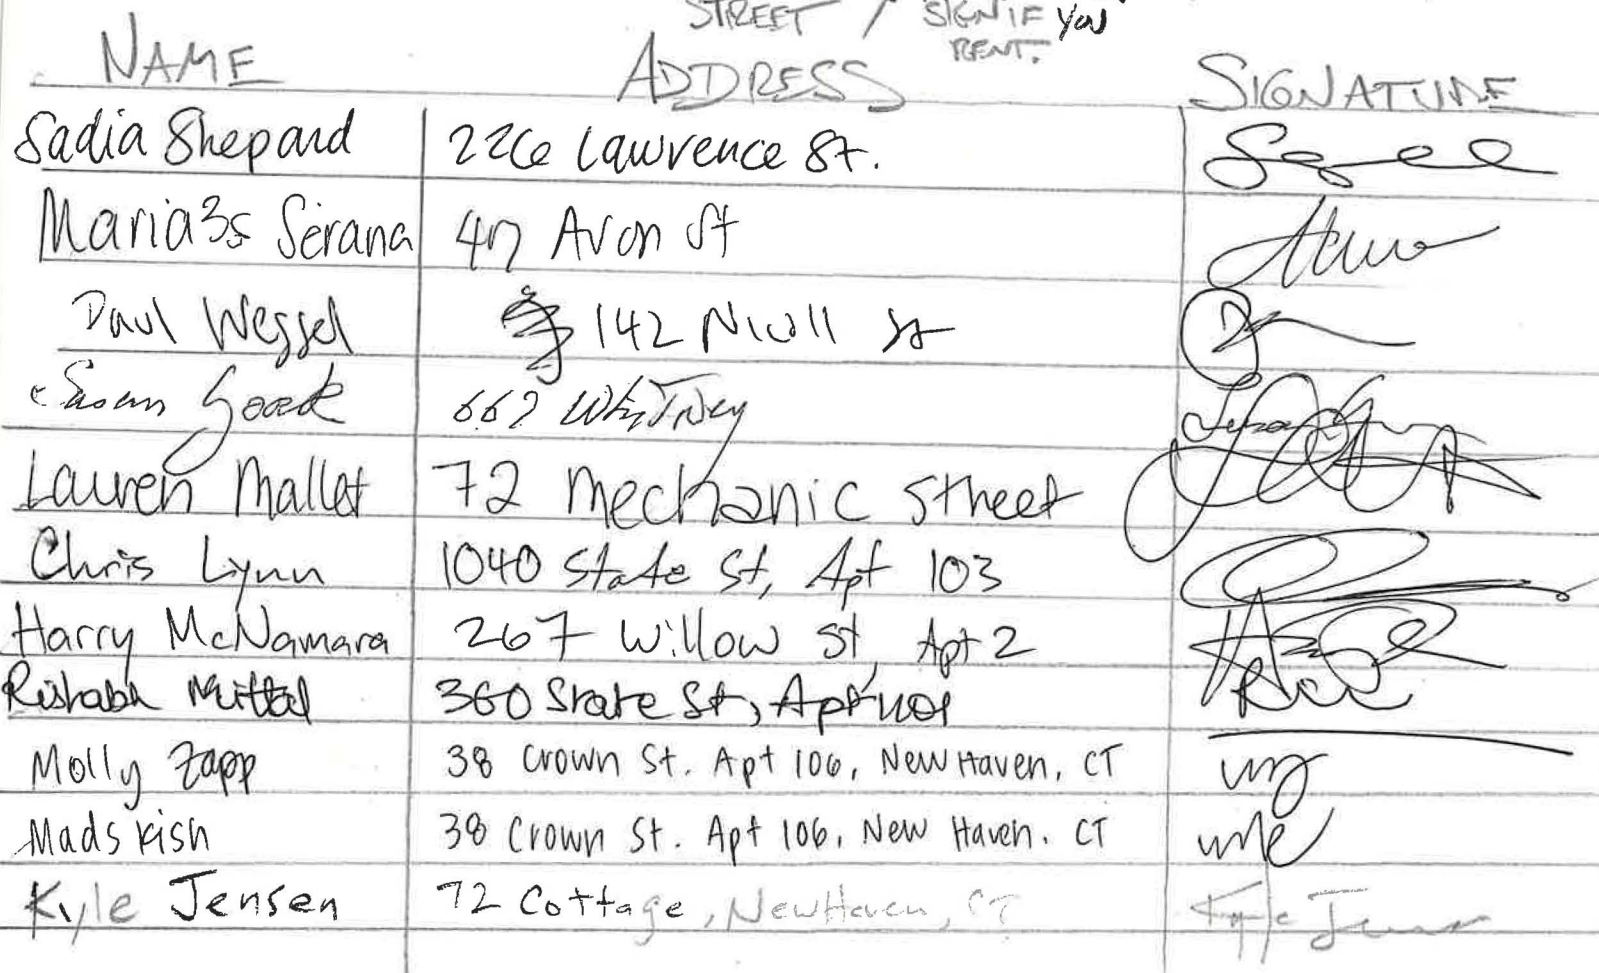 STREET / SIGN IF YOU
RENT.
NAME ADDRESS SIGNATURE
Sadia Shepard 226 Lawrence St.
Serana 47 Avon St
Paul Wessel 142 Nicoll St
Susan 662 Whitney
Lauren Mallet 72 Mechanic Street
Chris Lynn 1040 State St, Apt 103
Harry McNamara 267 Willow St, Apt 2
Rishabh Mittal 360 State St, Apt
Molly Zapp 38 Crown St. Apt 106, New Haven, CT
Mads Kish 38 Crown St. Apt 106, New Haven. CT
Kyle Jensen 72 Cottage, New Haven, CT Kyle Jensen